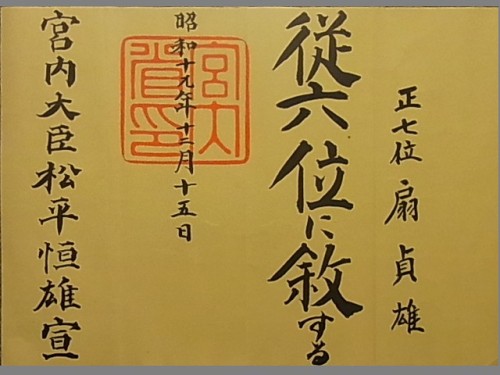 正七位 扇貞雄
従六位に敍する
昭和十九年十二月十五日
宮内省印
宮内大臣松平恒雄宣